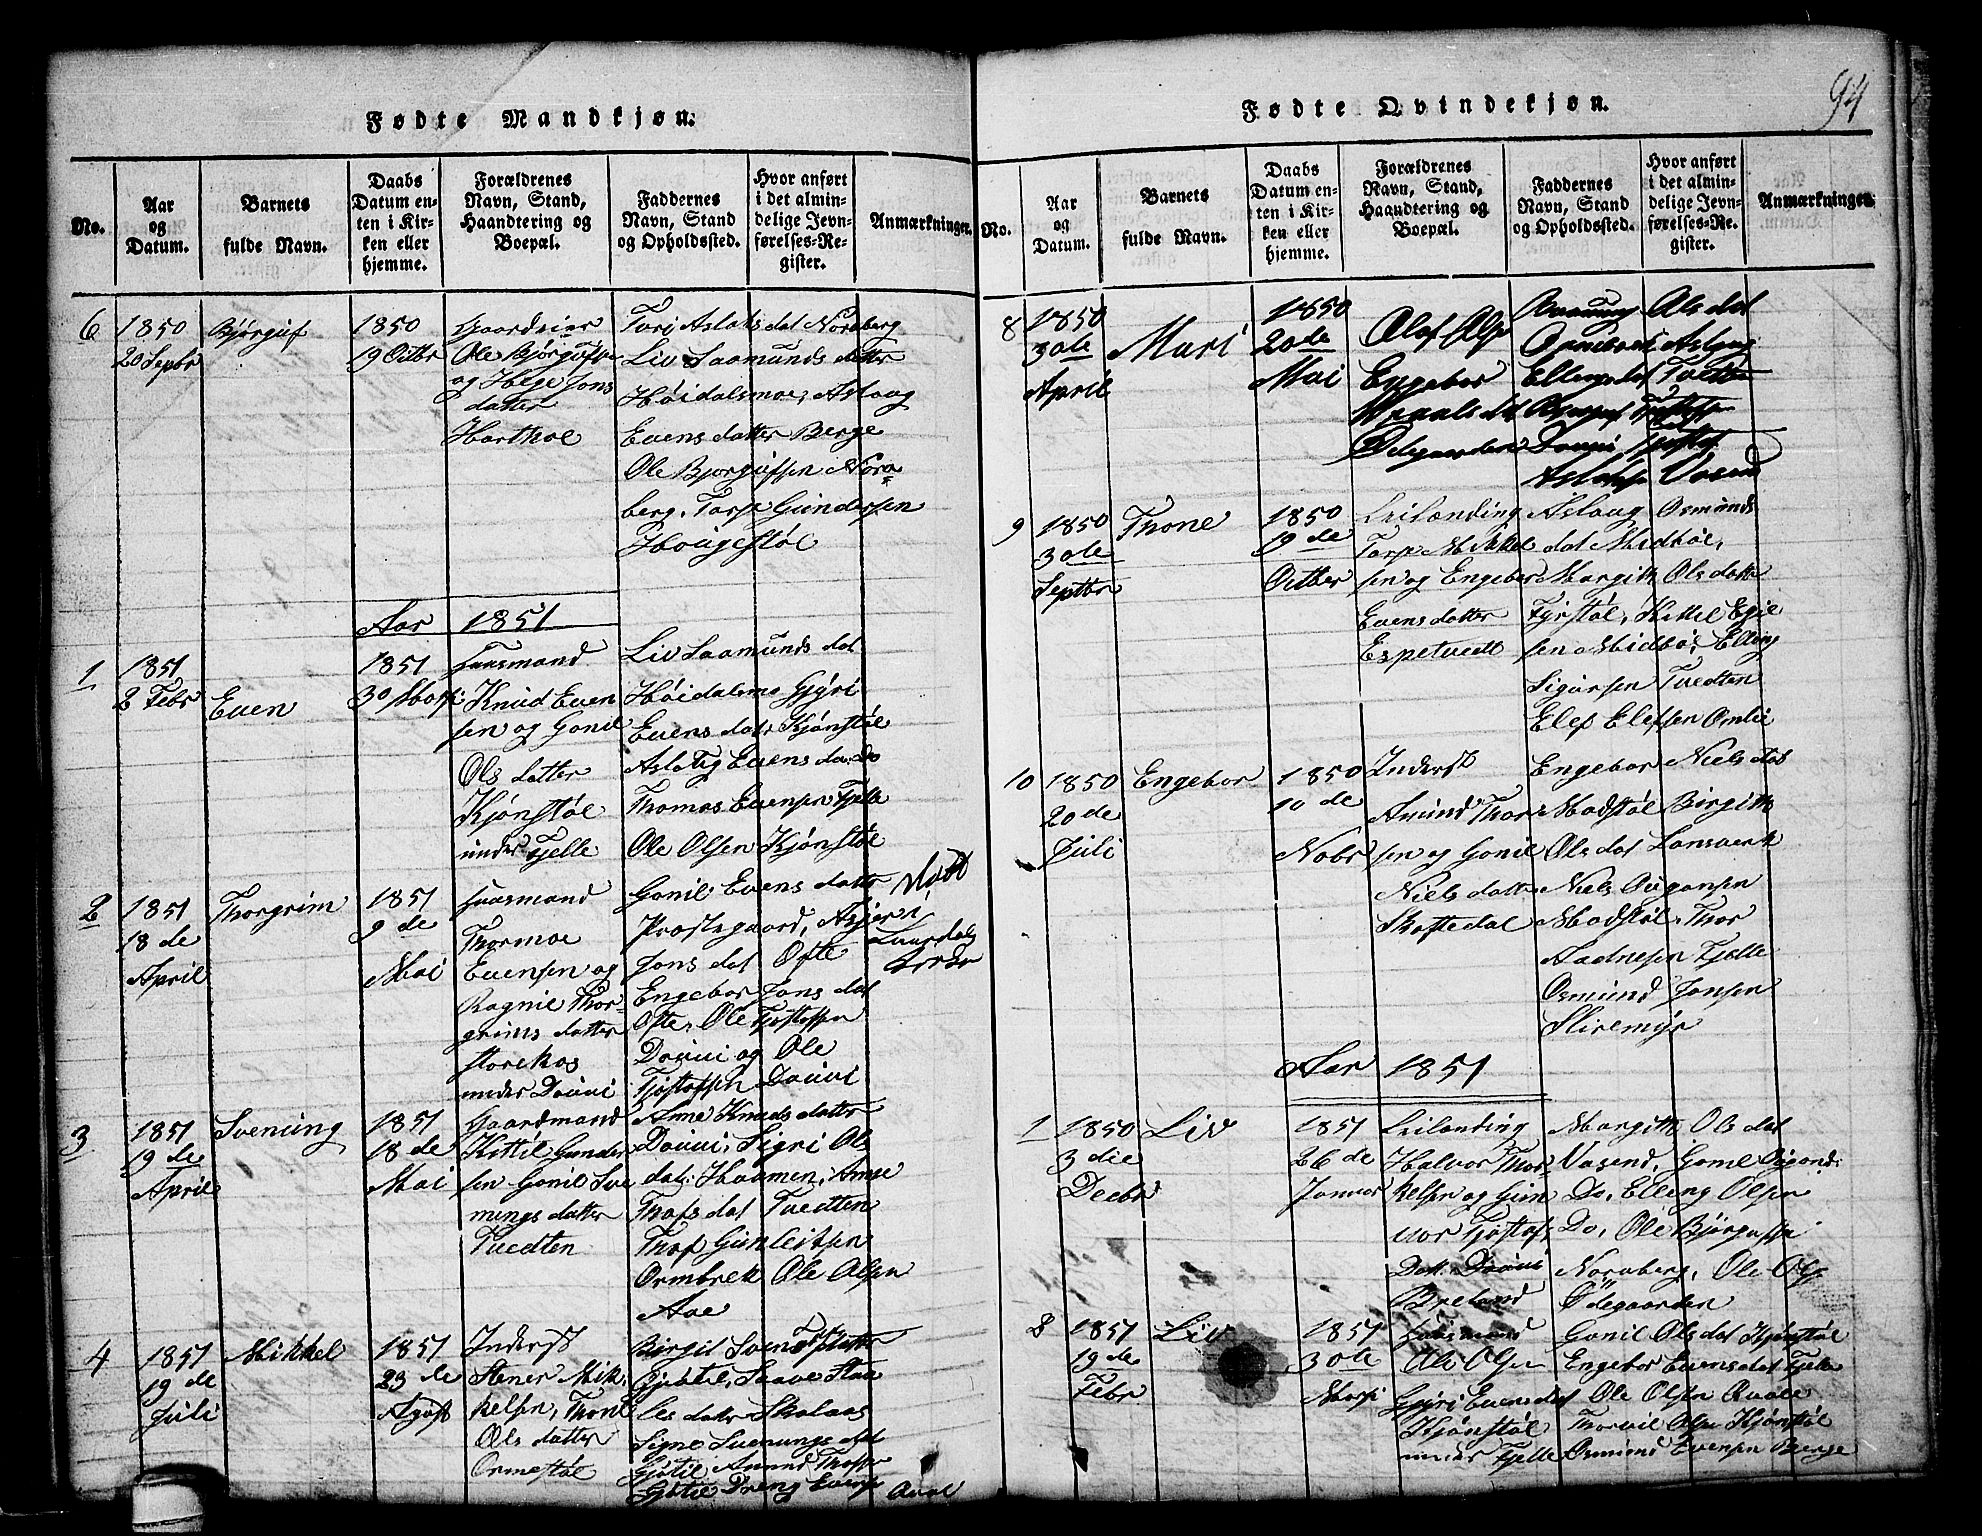 94
Fødte Mandkjøn.
No.
Aar og Datum.
Barnets fulde Navn.
Daabs Datum enten i Kirken eller hjemme.
Forældrenes Navn, Stand, Haandtering og Boepæl.
Faddernes Navn, Stand og Opholdssted.
Hvor anført i det almindelige Jevnførelses-Register.
Anmærkninger.
6
1850
20 Septbr
Bjørguf
1850
19 Octbr
Gaardeier
Ole Bjørgufsen
og Hege Jons
datter
Hørthoe
Turi Aslaks dat Norberg
Liv Saamunds datter
Høidalsmoe, Aslaug
Evens datter Berge
Ole Bjorgufsen Nor
berg, Torje Gundersen
Hougestøl
Aar 1851
1
1851
2 Febr
Even
1851
30 Marsi
Huusmand
Knud Even
sen og Gonil
Ols datter
Kjønstøl
under Fjelle
Liv Saamunds dat
Høidalsmo Gjyri
Evens datr Kjønstøl
Aslaug Evens dat Do
Thomas Evensen Fjelle
Ole Olsen Kjønstøl
2
1851
18 de
April
Thorgrim
1851
9 de
Mai
Huusmand
Thormoe
Evensen og
Ragnil Thor
grims datter
Storekaas
under Dauvi
Gonil Evens datter
Prostegaard, Asjer
Jons dat Ofte
Engebor Jons dat
Ofte, Ole Tjøstofsen
Dauvi og Ole
Tjøstofsen Dauvi
døbt
i
Laurdals
Kirke
3
1851
19 de
April
Svenung
1851
18 de
Mai
Gaardmand
Kittil Gunder
sen Gonil Sve
nungs datter
Tvedten
Anne Knuds datter
Dauvi, Sigri Ols
dat: Haamen, Anne
Thors dat Tvedten
Thor Gunleiksen
Ormbrek Ole Olsen
Aae
4
1851
19 de
Juli
Mikkel
1851
23 de
Agust
Inderst
Stener Mik
kelsen, Thone
Ols datter
Ormestøl
Birgit Svenungs datter
Gjøtil, Saave Staa
les datter Skalaas
Signe Svenungs dat
Gjøtil Anund Thorsen
Gjøtil Dreng Evensen
Qvale
Fødte Qvindekjøn.
No.
Aar og Datum.
Barnets fulde Navn.
Daabs Datum enten i Kirken eller hjemme.
Forældrenes Navn, Stand, Haandtering og Boepæl.
Faddernes Navn, Stand og Opholdssted.
Hvor anført i det almindelige Jevnførelses-Register.
Anmærkninger.
8
1850
30te
April
Mari
1850
20de
Mai
Olef Olsen
Engebor
Ødegaarden
Ols dat
Aslaug
Ellings dat Tvedten
Dauvi
Aslaksen Vasend
9
1850
30te
Septbr
Thone
1850
19 de
Octber
Leilænding
Torje Mikkel
sen og Engebor
Evens datter
Espetvedt
Aslaug Osmunds
dat Midbøe,
Margith Ols datter
Fyrstøl, Kittel Egil
sen Midbøe, Elling
Sigursen Tvedten
Elef Elefsen Omlie
10
1850
20 de
Juli
Engebor
1850
10 de
Nobr
Inderst
Anund Thor
sen og Gonil
Niels datter
Skaftedal
Engebor Niels dat
Modstøl Birgith
Ols dat Lonsverk
Niels Ougonsen
Modstøl, Thor
Aadnesen Fjelle
Osmund Jonsen
Sliremyr
Aar 1851
1
1850
3 die
Decbr
Liv
1851
26 de
Januar
Leilænding
Halvor Thor
kelsen og Gun
vor Tjøstofs
Dat. Dauvi
Breland
Margith Ols dat
Vasend, Gonil Ougonds
Do, Elling Olsen
Do, Ole Bjørgufsen
Norberg, Ole Olsen
Ødegaarden
2
1851
19 de
Febr
Liv
1851
30te
Marsi
Huusmand
Ole Olsen
Gyri Evens dat
Kjønstøl
under Fjelle
Gonil Ols dat Kjønstøl
Engebor Evens dat Fjelle
Ole Olsen Qvale
Thorvil Olsen Kjønstøl
Osmund Evensen Berge